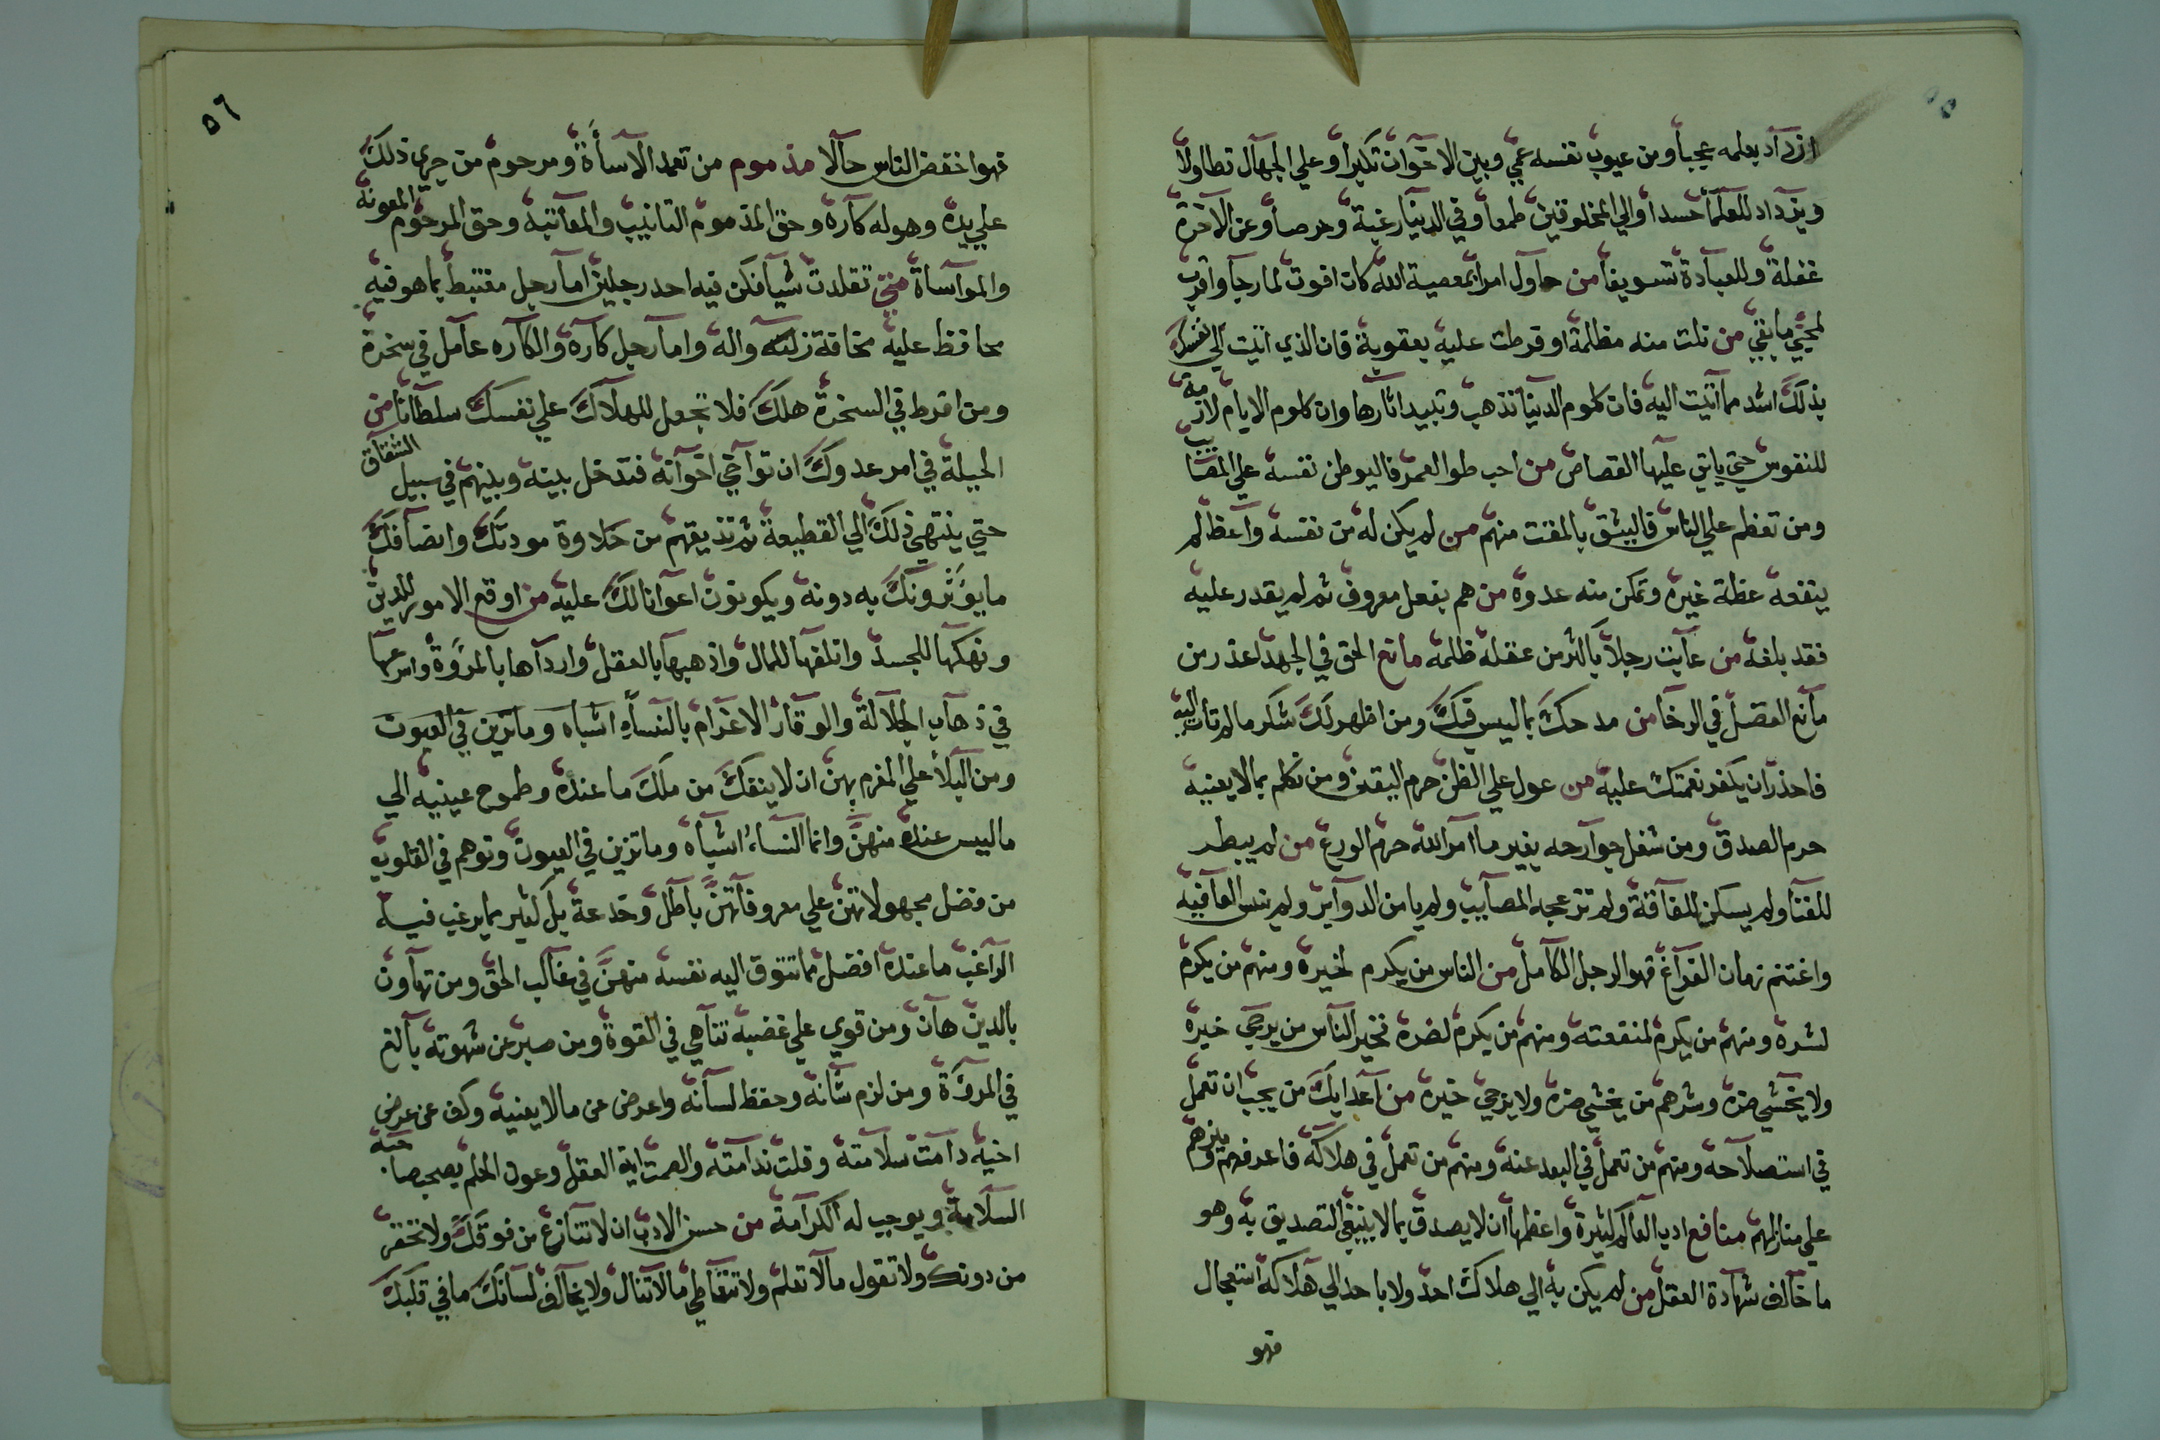 ٥٥
ازداد بعلمه عجبا ومن عيوب نفسه عمي وبين الاخوان تكبرا وعلي الجهال تطاولا
ويزداد للعلما حسدا والي المخلوقين طمعا وفي الدنيا رغبة وحرصا وعن الآخرة
غفلة وللعبادة تسويفا من حاول امرا بمعصية الله كان افوت لما رجا واقرب
لمجئ ما يتقي من نلت منه مظلمة او فرطت عليه بعقوبة فان الذي اتيت الي نفسك
بذلك اشد مما اتيت اليه فان كلوم الدنيا تذهب وتبيد اثارها وان كلوم الايام لازمة
للنفوس حتي ياتي عليها القصاص من احب طوا العمر فاليوطن نفسه علي المصايب
ومن تعظم علي الناس فاليثق بالمقت منهم من لم يكن له من نفسه واعظ لم
ينفعه عظة غيره وتمكن منه عدوه من هم بفعل معروف ثم لم يقدر عليه
فقد بلغه من عايت رجلا باكثر من عقله ظلمه مانع الحق في الجهد اعذر من
مانع الفضل في الرخا من مدحك بما ليس فيك ومن اظهر لك شكر ما لم تأت اليه
فاحذر ان يكفر نعمتك عليه من عول علي الظن حرم اليقين ومن تكلم بما لا يعنيه
حرم الصدق ومن شغل جوارحه بغير ما امر الله حرم الورع من لم يبطر
للغنا ولم يسكن للفاقة ولم تزعجه المصايب ولم يامن الدواير ولم ينس العاقبه
واغتنم زمان الفراغ فهو الرجل الكامل من الناس من يكرم لخيره ومنهم من يكرم
لشره ومنهم من يكرم لمنفعته ومنهم من يكرم لضره فخير الناس من يرجي خيره
ولا يخشي ضره وشرهم من يخشي ضره ولا يرجي خيره من اعدايك من يجب ان تعمل
في استصلاحه ومنهم من تعمل في البعد عنه ومنهم من تعمل في هلاكه فاعرفهم وميزهم
علي منازلهم منافع ادب العالم كثيرة واعظمها ان لا يصدق بما لا ينبغي التصديق به وهو
ما خالف شهادة العقل من لم يكن به الي هلاك احد ولا باحد الي هلاكه استعجال
فهو
٥٦
فهو اخفض الناس حالا مذموم من تعمد الاسأة ومرحوم من جري ذلك
علي يده وهو له كاره وحق المذموم التانيب والمعاتبة وحق المرحوم المعونة
والمواساة متي تقلدت شيا فكن فيه احد رجلين اما رجل مغتبط بما هو فيه
محافظ عليه مخافة زلته واله واما رجل كاره والكاره عامل في سخرة
ومن افرط في السخرة هلك فلا تجعل للهلاك علي نفسك سلطانا من
الحيلة في امر عدوك ان تواخي اخوانه فتدخل بينه وبينهم في سبيل الشقاق
حتي ينتهي ذلك الي القطيعة ثم تذيقهم من حلاوة مودتك وانصافك
ما يؤثرونك به دونه ويكونون اعوانا لك عليه من اوقع الامور للدين
ونهكها للجسد واتلفها للمال واذهبها بالعقل وارداها بالمروة واسرعها
في ذهاب الجلالة والوقار الاغرام بالنساء اشباه وما تزين في العيون
ومن البلأ علي المغرم بهن ان لا ينفك من ملك ما عنده وطموح عينيه الي
ما ليس عنده منهن وانما النساء اشباه وما تزين في العيون وتوهم في القلوب
من فضل مجهولاتهن علي معروفاتهن باطل وخدعة بل كثير مما يرغب فيه
الراغب ما عنده افضل مما تتوق اليه نفسه منهن في غالب الحق ومن تهاون
بالدين هان ومن قوي علي غضبه تناهي في القوة ومن صبر عن شهوته بالغ
في المروة ومن لزم شانه وحفظ لسانه واعرض عن ما لا يعنيه وكف عن عرض
اخيه دامت سلامته وقلت ندامته والصمت اية العقل وعون الحلم يصحب صاحبه
السلامة ويوجب له الكرامة من حسن الادب ان لا تتنازع من فوقك ولا تحتقر
من دونك ولا تقول ما لا تعلم ولا تتعاطي ما لا تنال ولا يخالف لسانك ما في قلبك